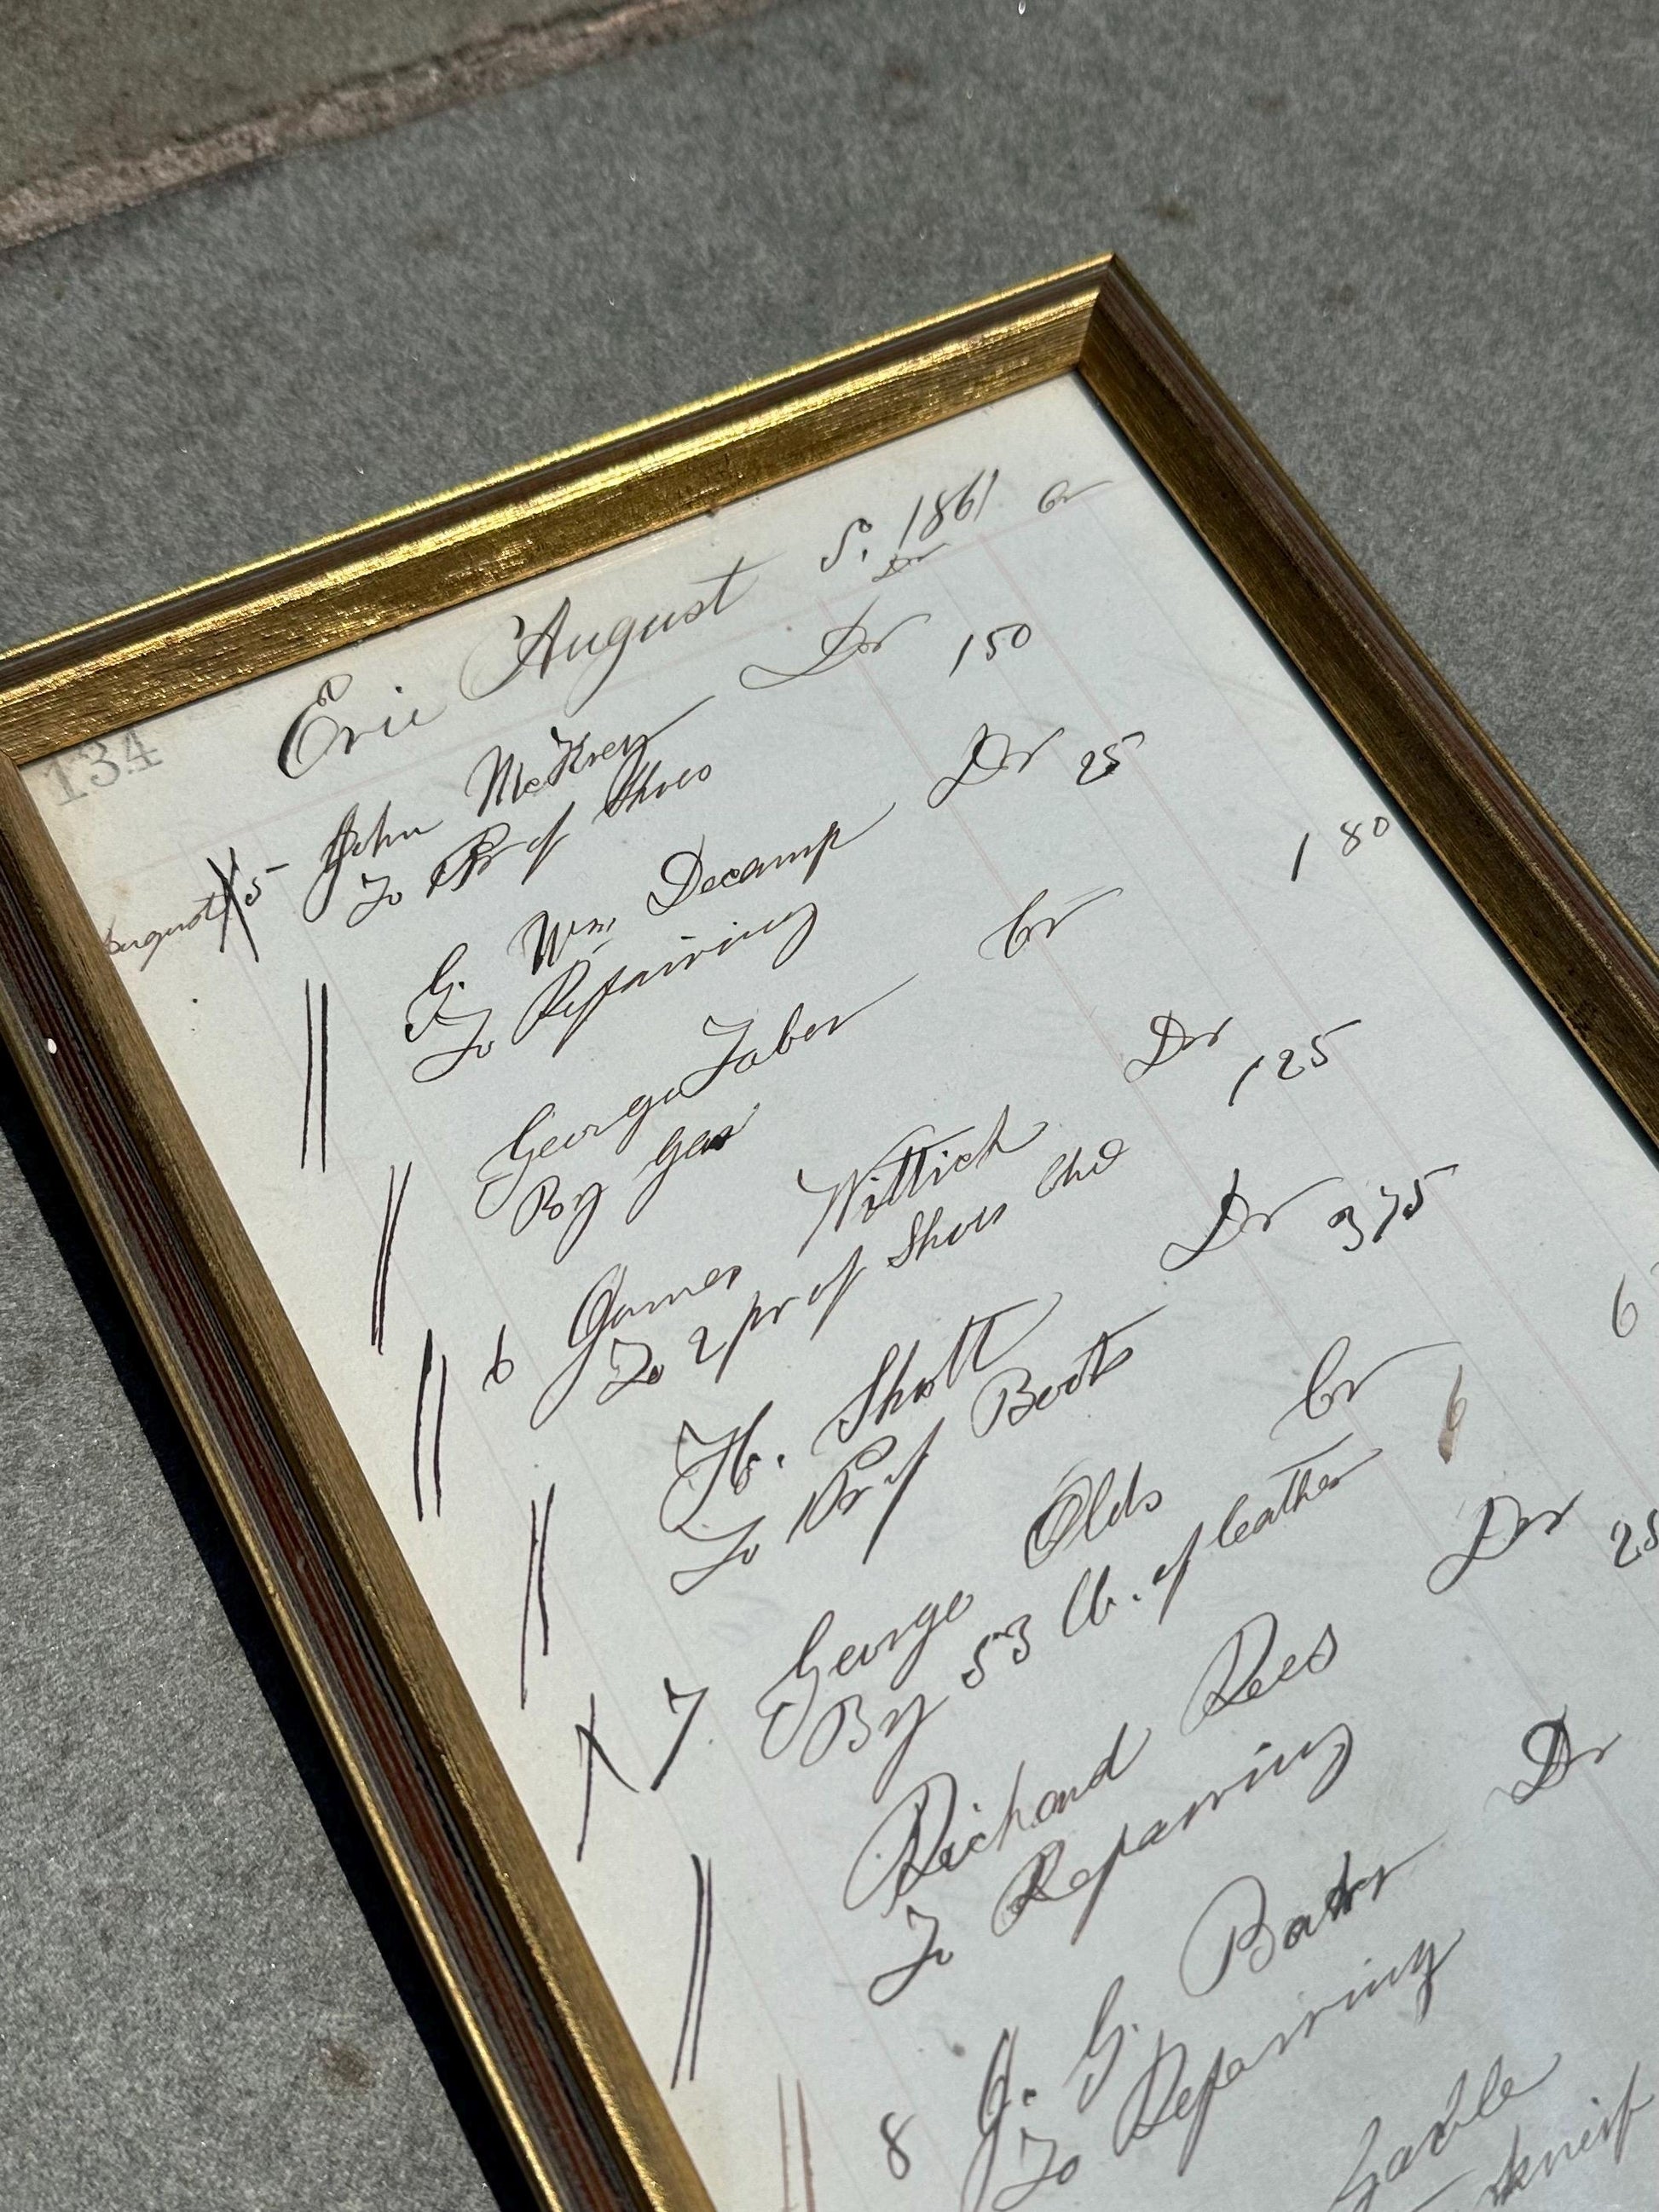 134
Erie August 5, 1861
Dr Cr
August 5 John McKrey Dr 150
To 1 Pr of Shoes
G. Wm Decamp Dr 25
To Repairing
George Taber Cr 1 80
By gas
6 James Wittich Dr 125
To 2 pr of Shoes Chd
H. Shott Dr 375
To 1 Pr of Boots
7 George Olds Cr 6
By 53 lb. of leather
Richard Rees Dr 25
To Reparring
8 J. G. Dr
To Reparring